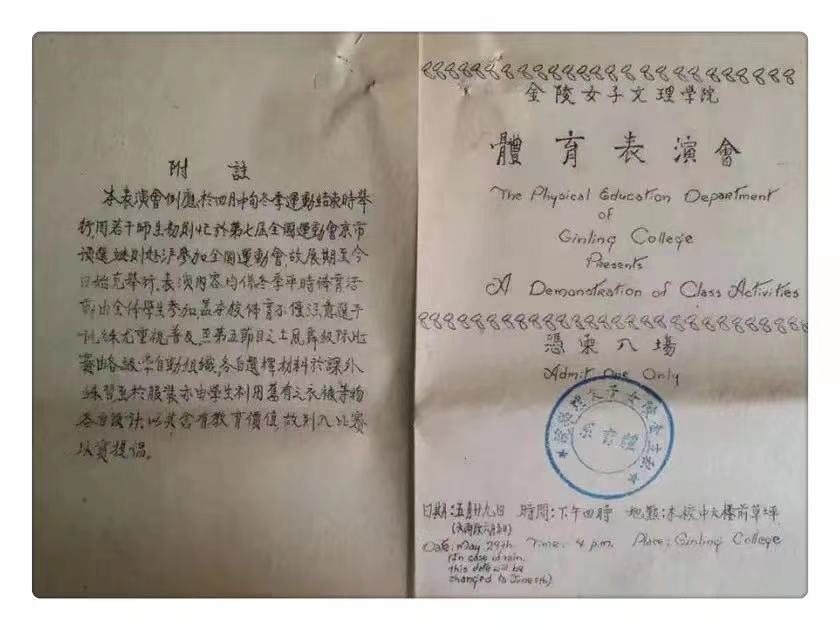 附 註
本表演會例應於四月中旬冬季運動結束時舉
行,因若干師生初則忙於第七屆全國運動會京市
預選,繼則赴滬參加全國運動會,故展期至今
日始克舉行,表演內容均係冬季平時體育活
動,由全體學生參加,蓋本校體育不僅注意選手
訓練尤重視普及,至第五節目之土風舞級際比
賽由各級學生自動組織,各自選擇材料於課外
練習至於服裝亦由學生利用舊有之衣被等物
各自設計,以其含有教育價值,故列入比賽
以資提倡。
金陵女子文理學院
體育表演會
The Physical Education Department
of
Ginling College
Presents
A Demonstration of Class Activities
憑票入場
Admit One Only
金陵女子文理學院
體育系
日期:五月廿九日 時間:下午四時 地點:本校中大樓前草坪
Date: May 29th Time: 4 p.m. Place: Ginling College
(In case of rain,
this date will be
changed to June 5th)